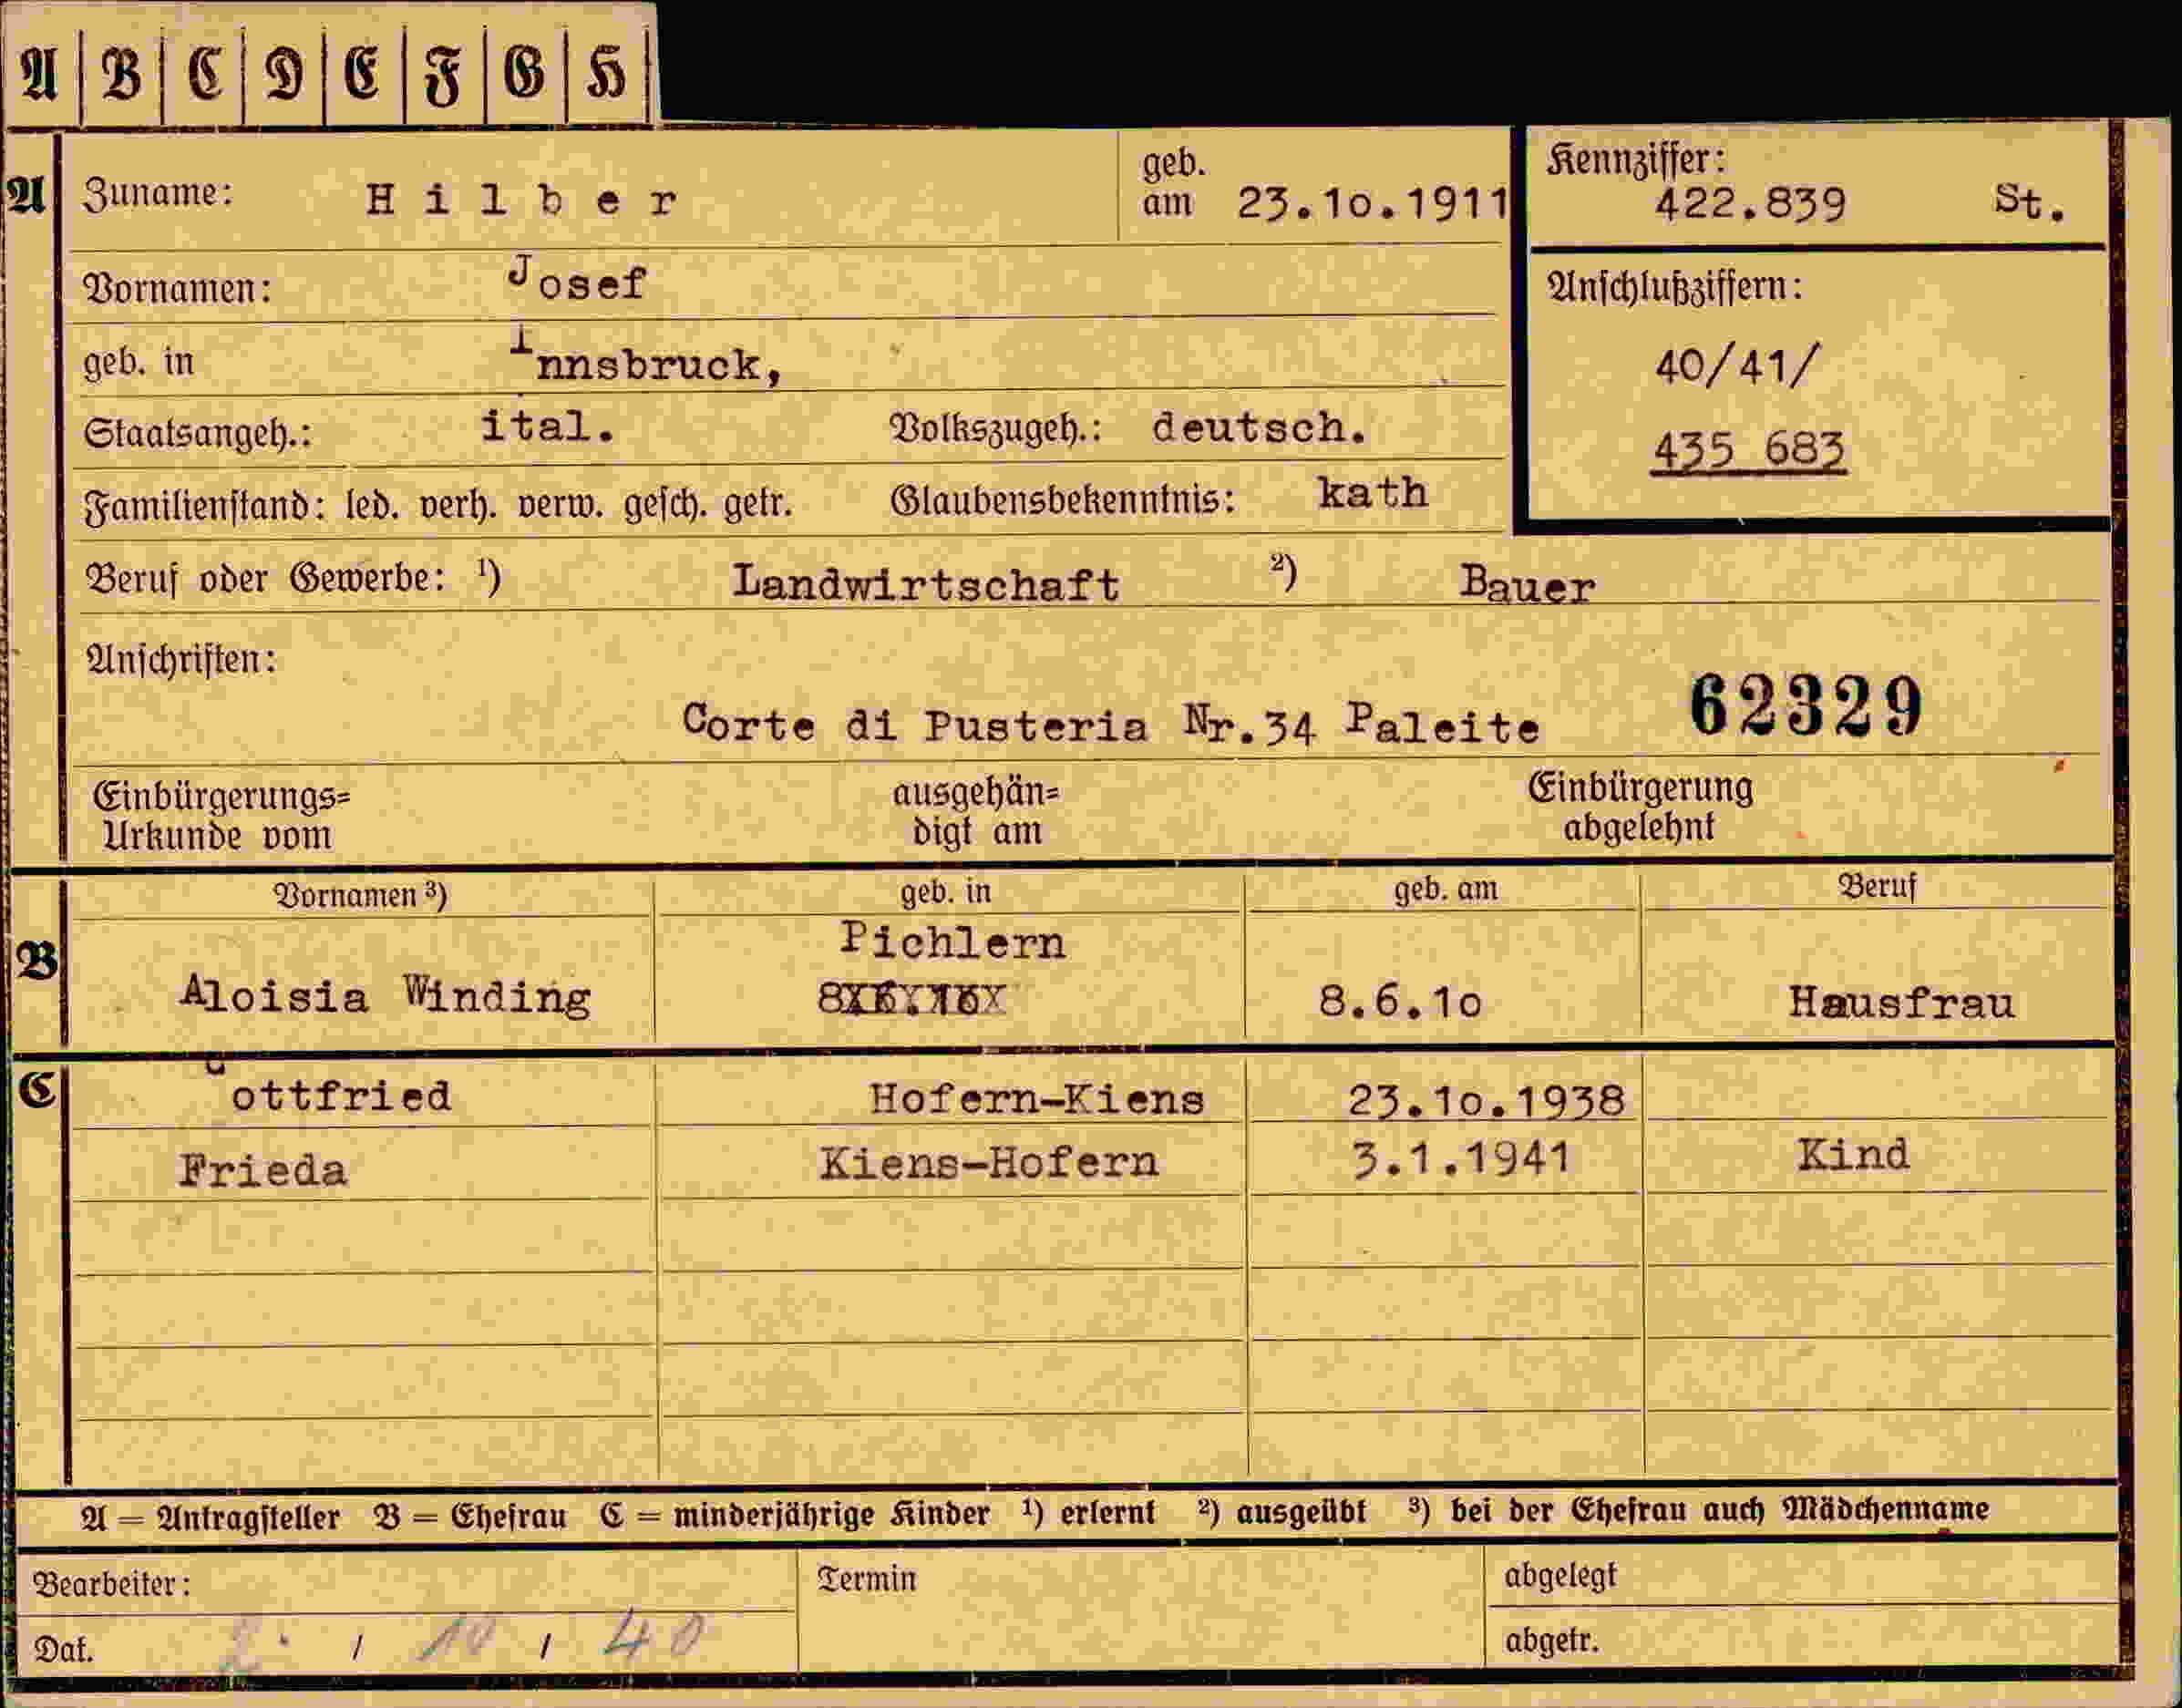 A B C D E F G H
A Zuname: Hilber geb. am 23.10.1911 Kennziffer: 422.839 St.
Vornamen: Josef Anschlußziffern:
geb. in Innsbruck, 40/41/
Staatsangeh.: ital. Volkszugeh.: deutsch. 435 683
Familienstand: led. verh. verw. gesch. getr. Glaubensbekenntnis: kath
Beruf oder Gewerbe: ¹) Landwirtschaft ²) Bauer
Anschriften:
Corte di Pusteria Nr.34 Paleite 62329
Einbürgerungs= ausgehän= Einbürgerung
Urkunde vom digt am abgelehnt
Vornamen ³) geb. in geb. am Beruf
B Pichlern
Aloisia Winding 8.6.10 Hausfrau
C Gottfried Hofern-Kiens 23.10.1938
Frieda Kiens-Hofern 3.1.1941 Kind
A = Antragsteller B = Ehefrau C = minderjährige Kinder ¹) erlernt ²) ausgeübt ³) bei der Ehefrau auch Mädchenname
Bearbeiter: Termin abgelegt
Dat. 2. / 10 / 40 abgetr.